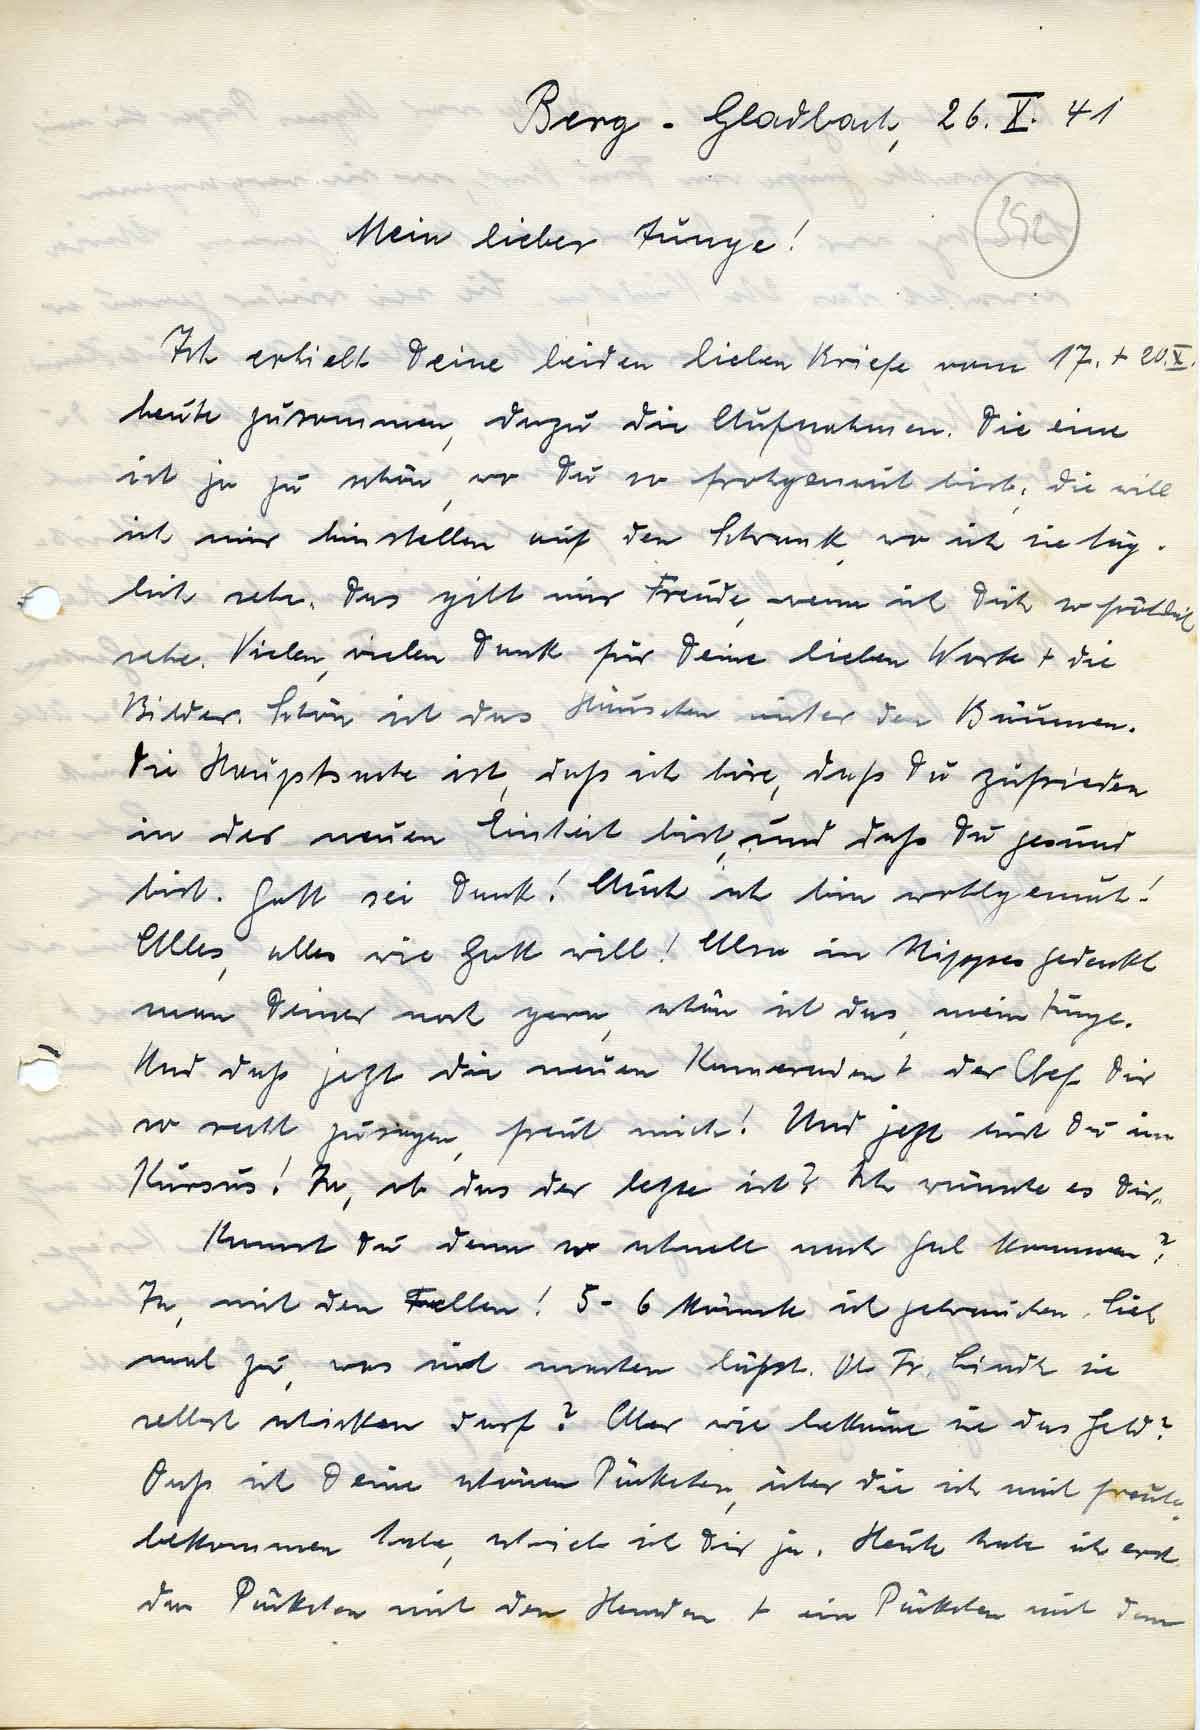 Berg - Gladbach, 26. X. 41
352
Mein lieber Junge!
Ich erhielt Deine beiden lieben Briefe vom 17. + 20. X.
heute zusammen, dazu die Aufnahmen. Die eine
ist ja zu schön, wo Du so frohgemut bist, die will
ich mir hinstellen auf den Schrank, wo ich sie täg-
lich sehe. Das gibt mir Freude, wenn ich Dich so fröhlich
sehe. Vielen, vielen Dank für Deine lieben Worte + die
Bilder. Schön ist das Häuschen unter den Bäumen.
Die Hauptsache ist, daß ich höre, daß Du zufrieden
in der neuen Einheit bist, und daß Du gesund
bist. Gott sei Dank! Auch ich bin wohlgemut!
Alles, alles wie Gott will! Also in Nippes gedenkt
man Deiner noch gern, schön ist das, mein Junge.
Und daß jetzt die neuen Kameraden + der Chef Dir
so recht zusagen, freut mich! Und jetzt bist Du im
Kursus! Ja, ob das der letzte ist? Ich wünsche es Dir.
Kannst Du denn so schnell nach kommen?
Ja, mit den Fellen! 5-6 könnte ich gebrauchen. Sieh
mal zu, was sich machen läßt. Ob Fr. sie
selbst schicken darf? Aber wie bekäme sie das Geld?
Daß ich Deine schönen Päckchen, über die ich mich freute,
bekommen habe, schrieb ich Dir ja. Heute habe ich erst
das Päckchen mit den Hemden + ein Päckchen mit dem